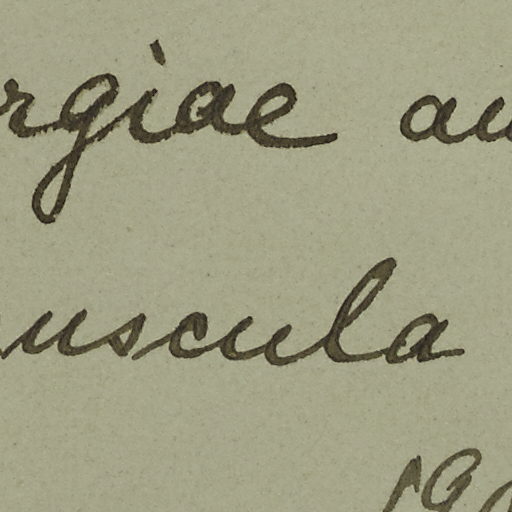 rgiae au
uscula
190